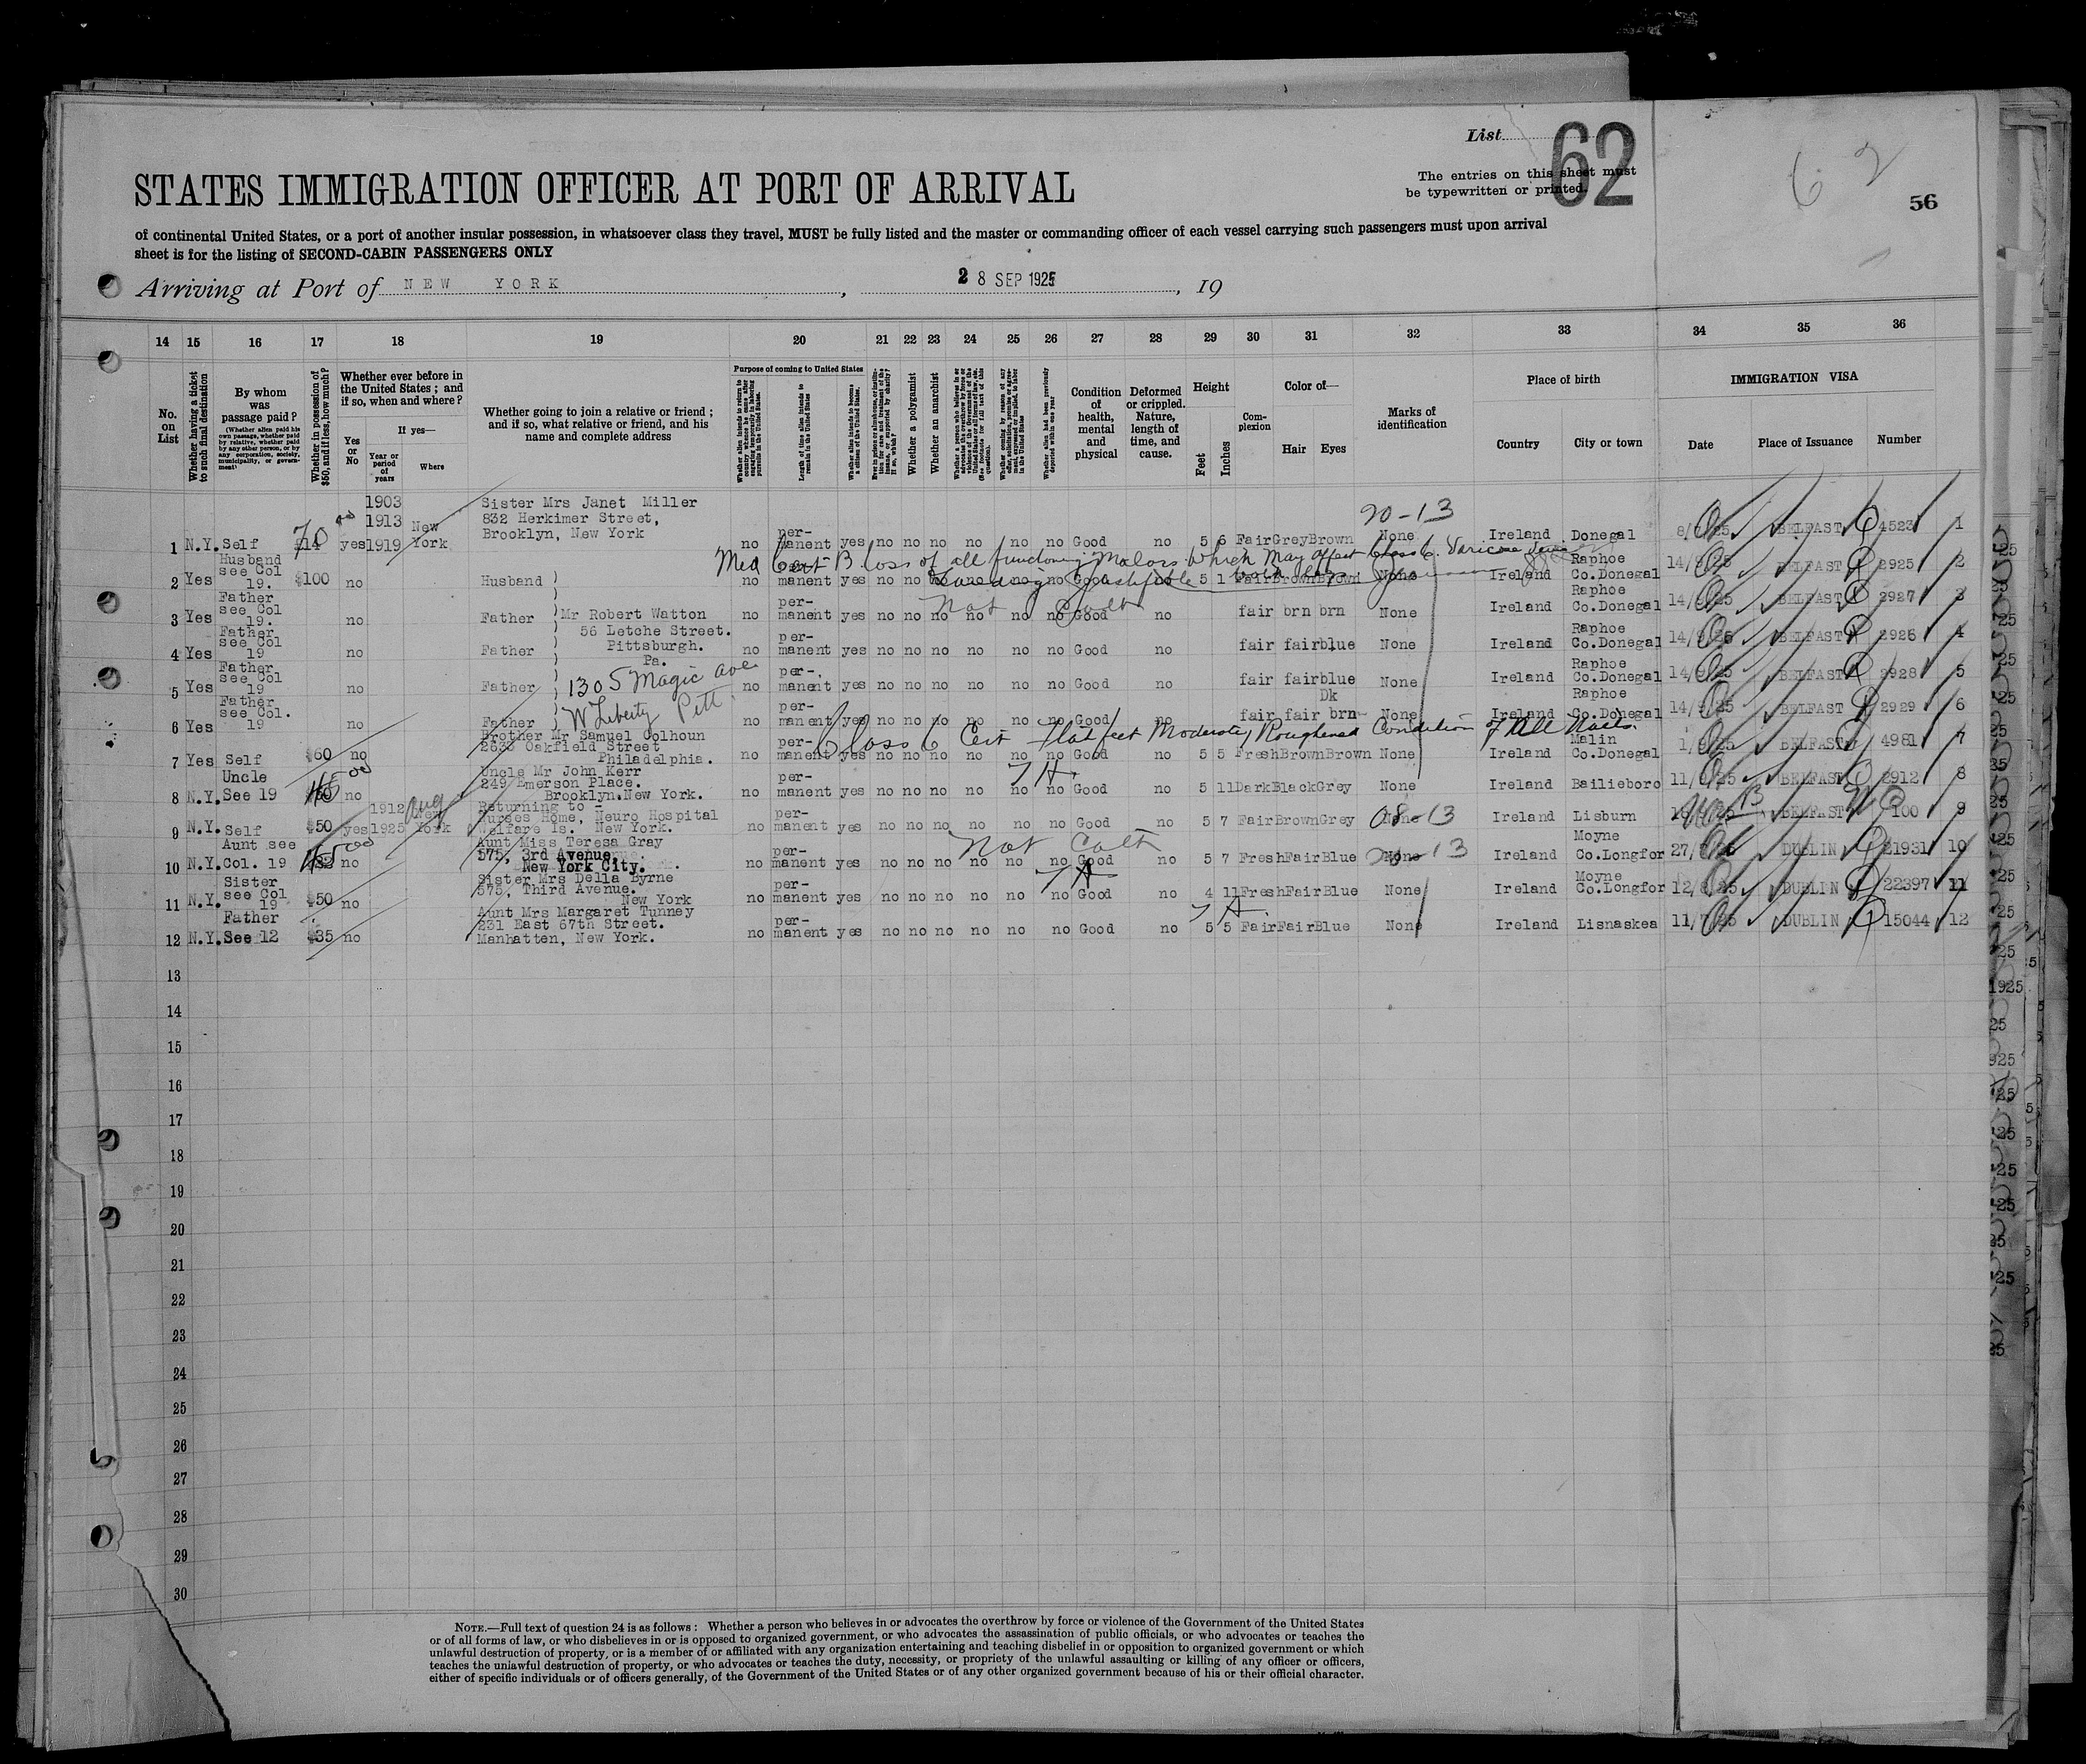 List 62
The entries on this sheet must
be typewritten or printed.
6 2
56
STATES IMMIGRATION OFFICER AT PORT OF ARRIVAL
of continental United States, or a port of another insular possession, in whatsoever class they travel, MUST be fully listed and the master or commanding officer of each vessel carrying such passengers must upon arrival
sheet is for the listing of SECOND-CABIN PASSENGERS ONLY
Arriving at Port of NEW YORK, 28 SEP 1925, 19
14 15 16 17 18 19 20 21 22 23 24 25 26 27 28 29 30 31 32 33 34 35 36
No. on List
Whether having a ticket to such final destination
By whom was passage paid?
(Whether alien paid his own passage, whether paid by relative, whether paid by any other person, or by any corporation, society, municipality, or government)
Whether in possession of $50, and if less, how much?
Whether ever before in the United States; and if so, when and where?
Yes or No
If yes—
Year or period of years
Where
Whether going to join a relative or friend; and if so, what relative or friend, and his name and complete address
Purpose of coming to United States
Length of time alien intends to remain in the United States
Whether alien intends to become a citizen of the United States
Whether a polygamist
Whether an anarchist
Whether alien had been previously deported within one year
Condition of health, mental and physical
Deformed or crippled. Nature, length of time, and cause.
Height
Feet
Inches
Complexion
Color of—
Hair Eyes
Marks of identification
Place of birth
Country City or town
IMMIGRATION VISA
Date Place of Issuance Number
1903
1913 New
Sister Mrs Janet Miller
832 Herkimer Street,
Brooklyn, New York
20-13
1 N.Y. Self 70 $14 yes 1919 York no permanent yes no no no no no no Good no 5 6 Fair Grey Brown None Ireland Donegal 8/7/25 BELFAST 4523 1
Med Cert B loss of all functioning Molars which May affect Class C. Varicose Veins
2 Yes Husband see Col 19. $100 no Husband no permanent yes no no 5 1 Fair Brown Brown None Ireland Raphoe Co.Donegal 14/9/25 BELFAST 2925 2
Not Coltr
3 Yes Father see Col 19. no Father Mr Robert Watton no permanent yes no no no no no no Good no fair brn brn None Ireland Raphoe Co.Donegal 14/9/25 BELFAST 2927 3
56 Letche Street.
4 Yes Father see Col 19 no Father Pittsburgh. no permanent yes no no no no no no Good no fair fair blue None Ireland Raphoe Co.Donegal 14/9/25 BELFAST 2926 4
Pa.
1305 Magic ave
5 Yes Father see Col 19 no Father no permanent yes no no no no no no Good no fair fair blue None Ireland Raphoe Co.Donegal 14/9/25 BELFAST 2928 5
W Liberty Pitt
6 Yes Father see Col. 19 no Father no permanent yes no no no no no no Good no fair fair Dk brn None Ireland Raphoe Co.Donegal 14/9/25 BELFAST 2929 6
Class C Cert flat feet Moderately Roughened Condition of All Nails.
Brother Mr Samuel Colhoun
2635 Oakfield Street
Philadelphia.
7 Yes Self $60 no no permanent yes no no no no no no Good no 5 5 Fresh Brown Brown None Ireland Malin Co.Donegal 1/9/25 BELFAST 4981 7
Uncle Mr John Kerr
249 Emerson Place.
Brooklyn.New York.
8 N.Y. Uncle See 19 no no permanent yes no no no no no no Good no 5 11 Dark Black Grey None Ireland Bailieboro 11/9/25 BELFAST 2912 8
Returning to -
Nurses Home, Neuro Hospital
Welfare Is. New York.
9 N.Y. Self $50 yes 1912 1925 Aug New York no permanent yes no no no no no no Good no 5 7 Fair Brown Grey None 08-13 Ireland Lisburn BELFAST 100 9
Not Coltr
Aunt Miss Teresa Gray
575, 3rd Avenue.
New York City.
10 N.Y. Aunt see Col. 19 no no permanent yes no no no no no no Good no 5 7 Fresh Fair Blue None Ireland Moyne Co.Longfor 27/ 25 DUBLIN 21931 10
Sister Mrs Della Byrne
575, Third Avenue.
New York
11 N.Y. Sister see Col 19 $50 no no permanent yes no no no no no no Good no 4 11 Fresh Fair Blue None Ireland Moyne Co.Longfor 12/8/25 DUBLIN 22397 11
Aunt Mrs Margaret Tunney
231 East 67th Street.
Manhatten, New York.
12 N.Y. Father See 12 $35 no no permanent yes no no no no no no Good no 5 5 Fair Fair Blue None Ireland Lisnaskea 11/7/25 DUBLIN 15044 12
13
14
15
16
17
18
19
20
21
22
23
24
25
26
27
28
29
30
NOTE.—Full text of question 24 is as follows: Whether a person who believes in or advocates the overthrow by force or violence of the Government of the United States
or of all forms of law, or who disbelieves in or is opposed to organized government, or who advocates the assassination of public officials, or who advocates or teaches the
unlawful destruction of property, or is a member of or affiliated with any organization entertaining and teaching disbelief in or opposition to organized government or which
teaches the unlawful destruction of property, or who advocates or teaches the duty, necessity, or propriety of the unlawful assaulting or killing of any officer or officers,
either of specific individuals or of officers generally, of the Government of the United States or of any other organized government because of his or their official character.